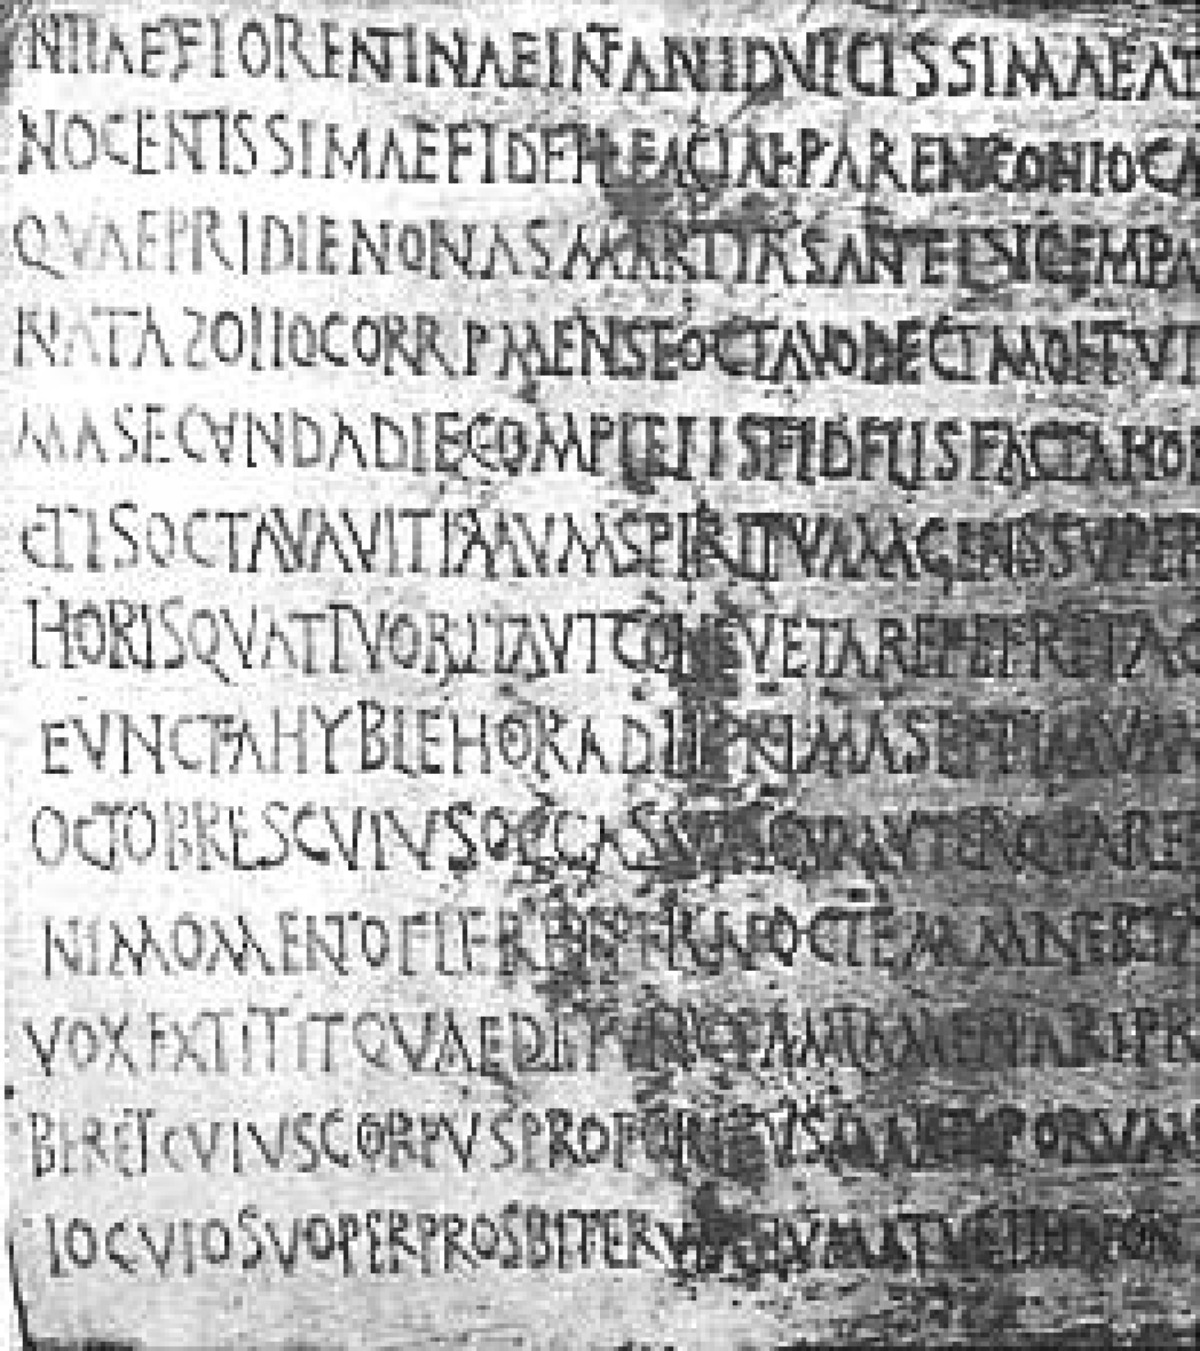 FLORENTINAE INFANTI DVLCISSIMAE AT
NOCENTISSIMAE FIDELI FACTAE PARENS CONLOCA
QVAE PRIDIE NONAS MARTIAS ANTE LVCEM PA
NATA ZOILO CORR P MENSE OCTAVO DECIMO ET VI
MA SECVNDA DIE COMPLETIS FIDELIS FACTA HOR
CTIS OCTAVA VLTIMVM SPIRITVM AGENS SVPER
HORIS QVATTVOR ITA VT CONSVETA REPETERET AC
EVNCTA HYBLE HORA DIEI PRIMA SEPTIMVM
OCTOBRES CVIVS OCCASVM CVM VTERQ PARE
NI MOMENTO FLERET PER NOCTEM
VOX EXTITIT QVAE DEFVNCTAM LAMENTARI PR
BERET CVIVS CORPVS PRO FORIBVS
LOCVLO SVO PER PROSBITERVM HVMATV E